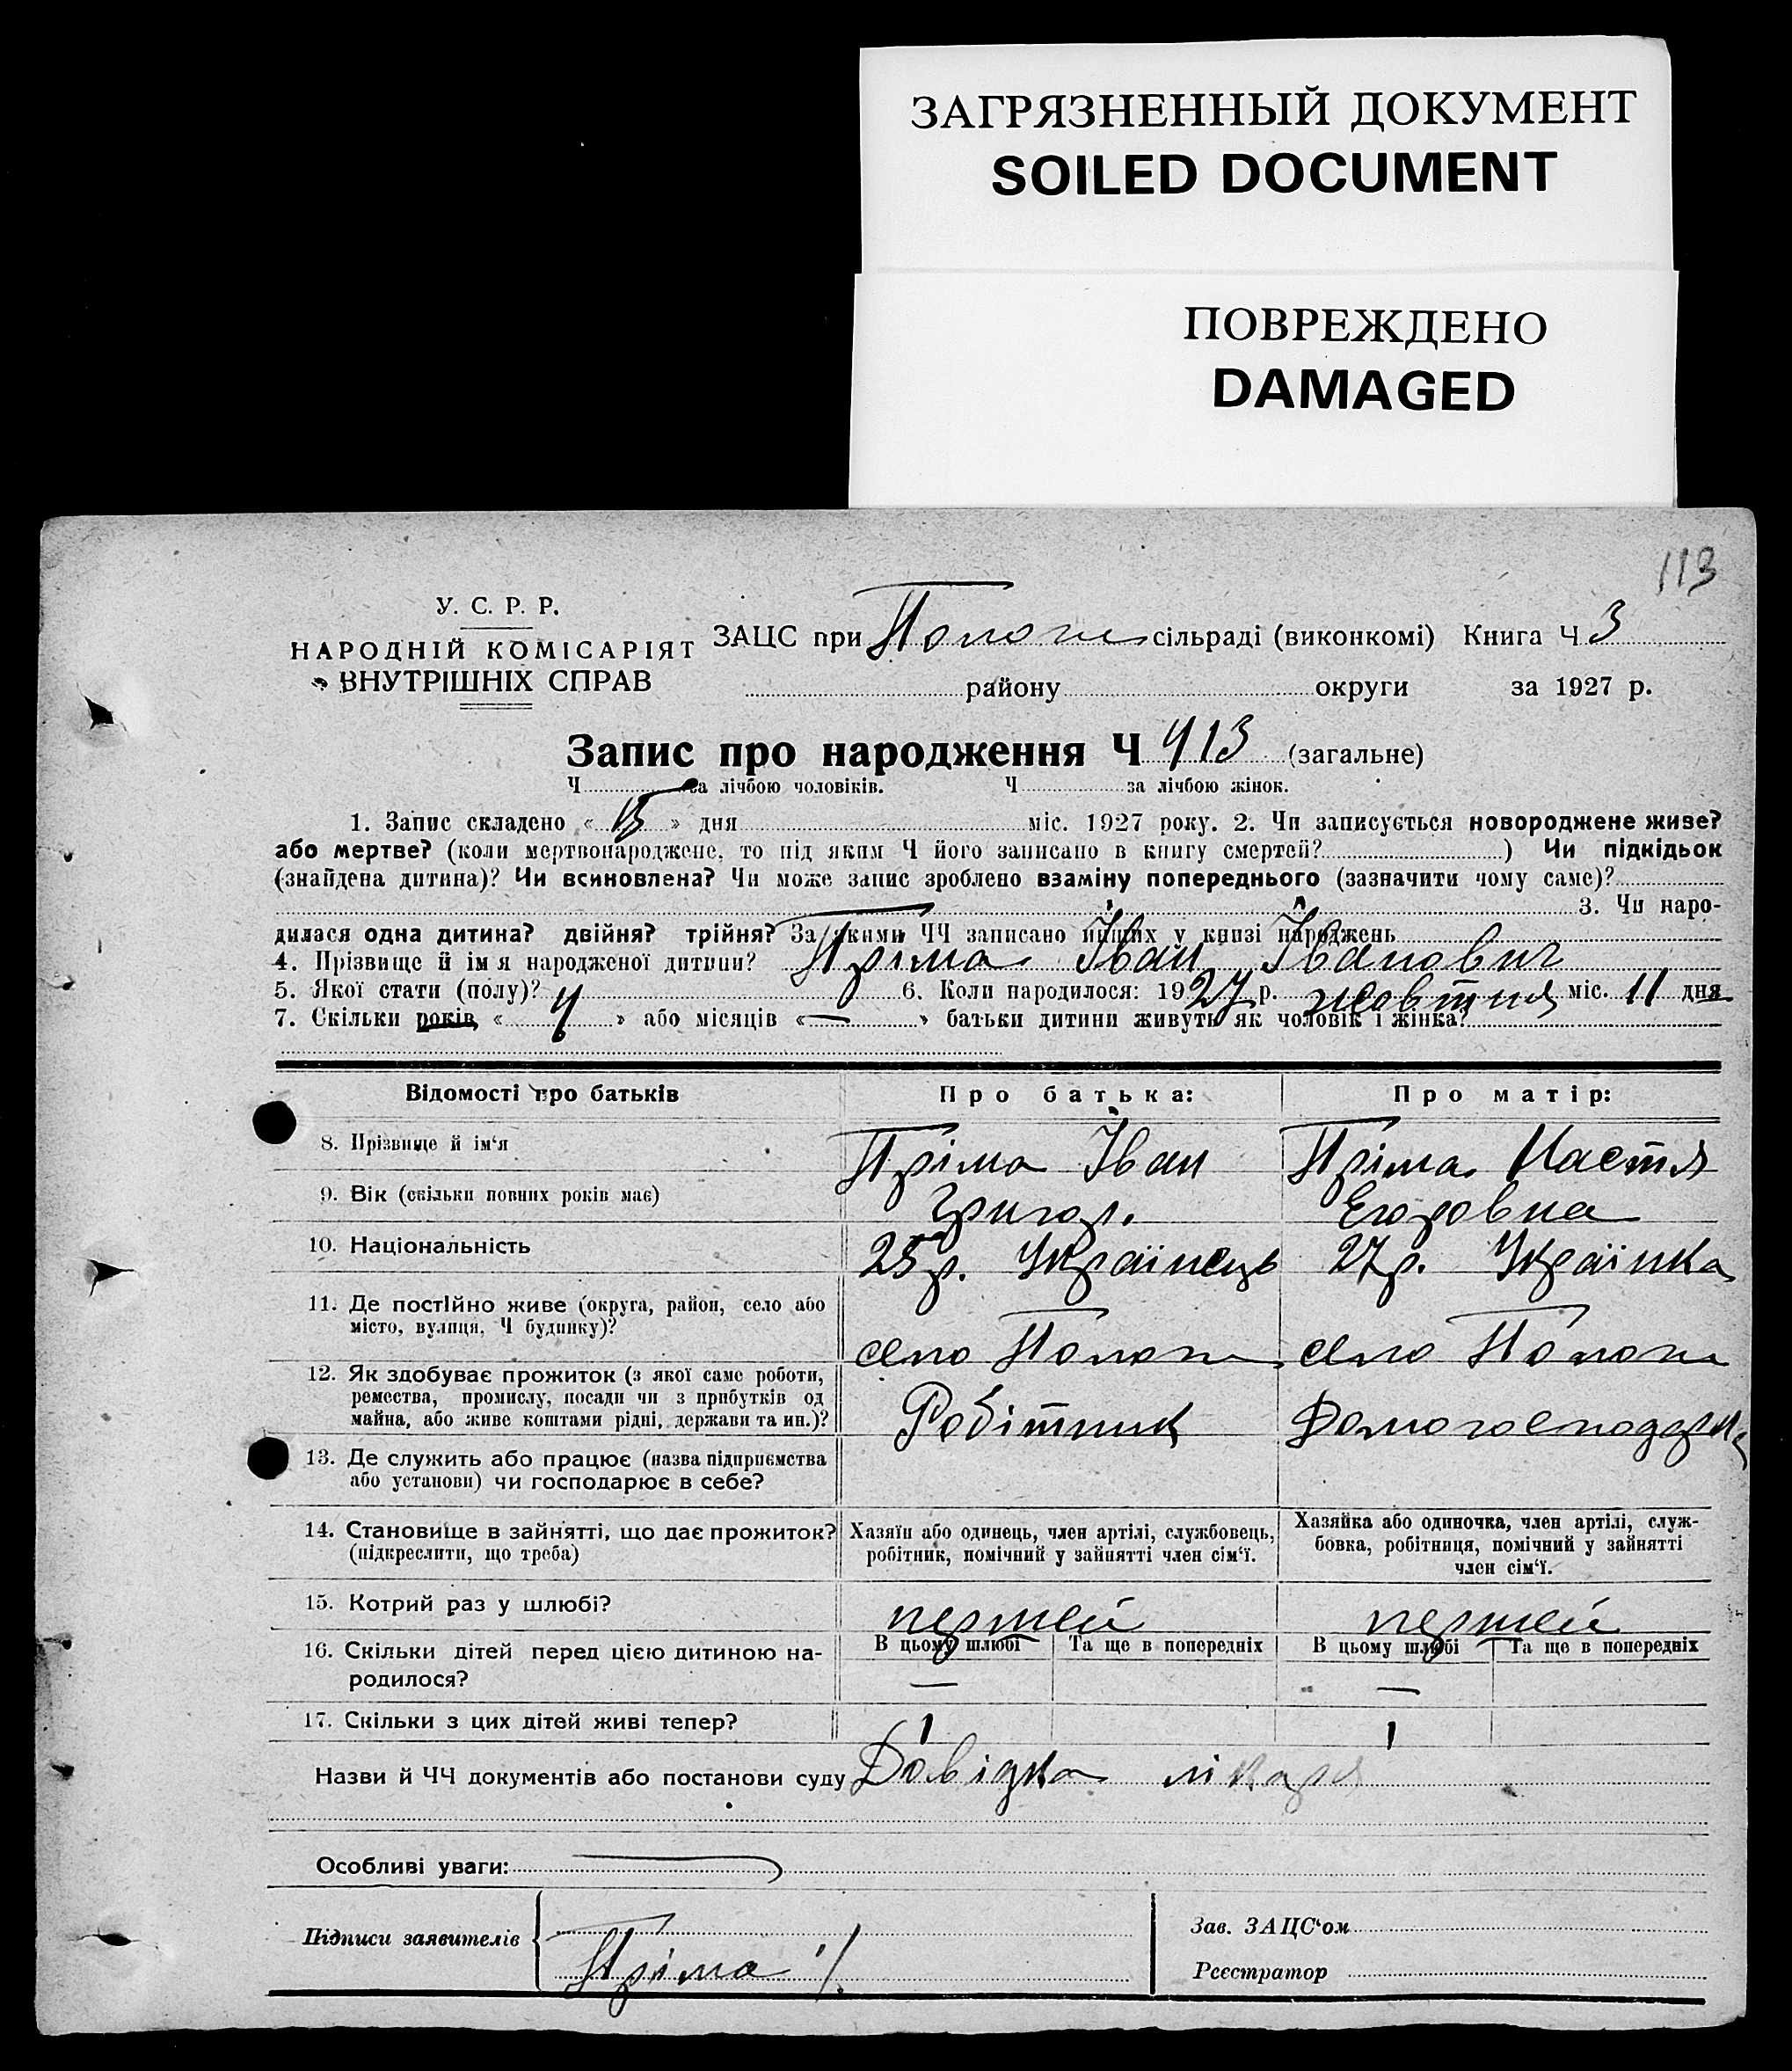 ЗАГРЯЗНЕННЫЙ ДОКУМЕНТ
SOILED DOCUMENT
ПОВРЕЖДЕНО
DAMAGED
113
У. С. Р. Р.
НАРОДНІЙ КОМІСАРІЯТ
ВНУТРІШНІХ СПРАВ
ЗАЦС при Пологи сільраді (виконкомі) Книга Ч 3
району округи за 1927 р.
Запис про народження Ч 413 (загальне)
Ч за лічбою чоловіків. Ч за лічбою жінок.
1. Запис складено « 15 » дня міс. 1927 року. 2. Чи записується новороджене живе?
або мертве? (коли мертвонароджене, то під яким Ч його записано в книгу смертей? ) Чи підкідьок
(знайдена дитина)? Чи всиновлена? Чи може запис зроблено взаміну попереднього (зазначити чому саме)?
3. Чи наро-
дилася одна дитина? двійня? трійня? За якими ЧЧ записано инших у книзі народжень
4. Прізвище й ім я народженої дитини? Пріма Іван Іванович
5. Якої стати (полу)? Ч 6. Коли народилося: 1927 р. жовтня міс. 11 дня
7. Скільки років « » або місяців « — » батьки дитини живуть як чоловік і жінка?
Відомості про батьків Про батька: Про матір:
8. Прізвище й ім‘я Пріма Іван Пріма Настя
9. Вік (скільки повних років має) Григор. Егоровна
10. Національність 25 р. Українець 27 р. Українка
11. Де постійно живе (округа, район, село або
місто, вулиця, Ч будинку)? село Пологи село Пологи
12. Як здобуває прожиток (з якої саме роботи,
ремества, промислу, посади чи з прибутків од
майна, або живе коштами рідні, держави та ин.)? Робітник Домогосподарка
13. Де служить або працює (назва підприємства
або установи) чи господарює в себе?
14. Становище в зайнятті, що дає прожиток?
(підкреслити, що треба)
Хазяїн або одинець, член артілі, службовець,
робітник, помічний у зайнятті член сім‘ї.
Хазяйка або одиночка, член артілі, служ-
бовка, робітниця, помічний у зайнятті
член сім‘ї.
15. Котрий раз у шлюбі? першей першей
16. Скільки дітей перед цією дитиною на-
родилося?
В цьому шлюбі Та ще в попередніх В цьому шлюбі Та ще в попередніх
— —
17. Скільки з цих дітей живі тепер? 1 1
Назви й ЧЧ документів або постанови суду Довідка лікаря
Особливі уваги:
Підписи заявителів Пріма
Зав. ЗАЦС‘ом
Реєстратор